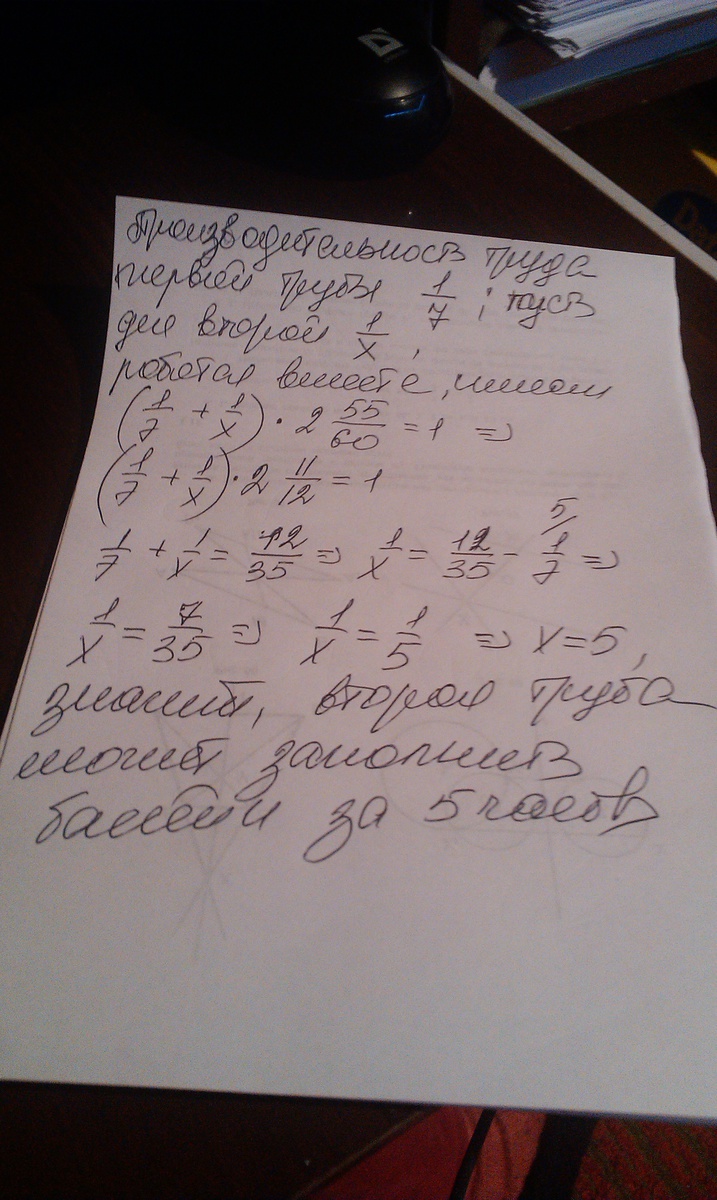 Производительность труда
первой трубы 1/7; пусть
для второй 1/x,
работая вместе, имеем
(1/7 + 1/x) · 2 55/60 = 1 =>
(1/7 + 1/x) · 2 11/12 = 1
1/7 + 1/x = 12/35 => 1/x = 12/35 - 5/ 1/7 =>
1/x = 7/35 => 1/x = 1/5 => x = 5,
значит, вторая труба
может заполнить
бассейн за 5 часов